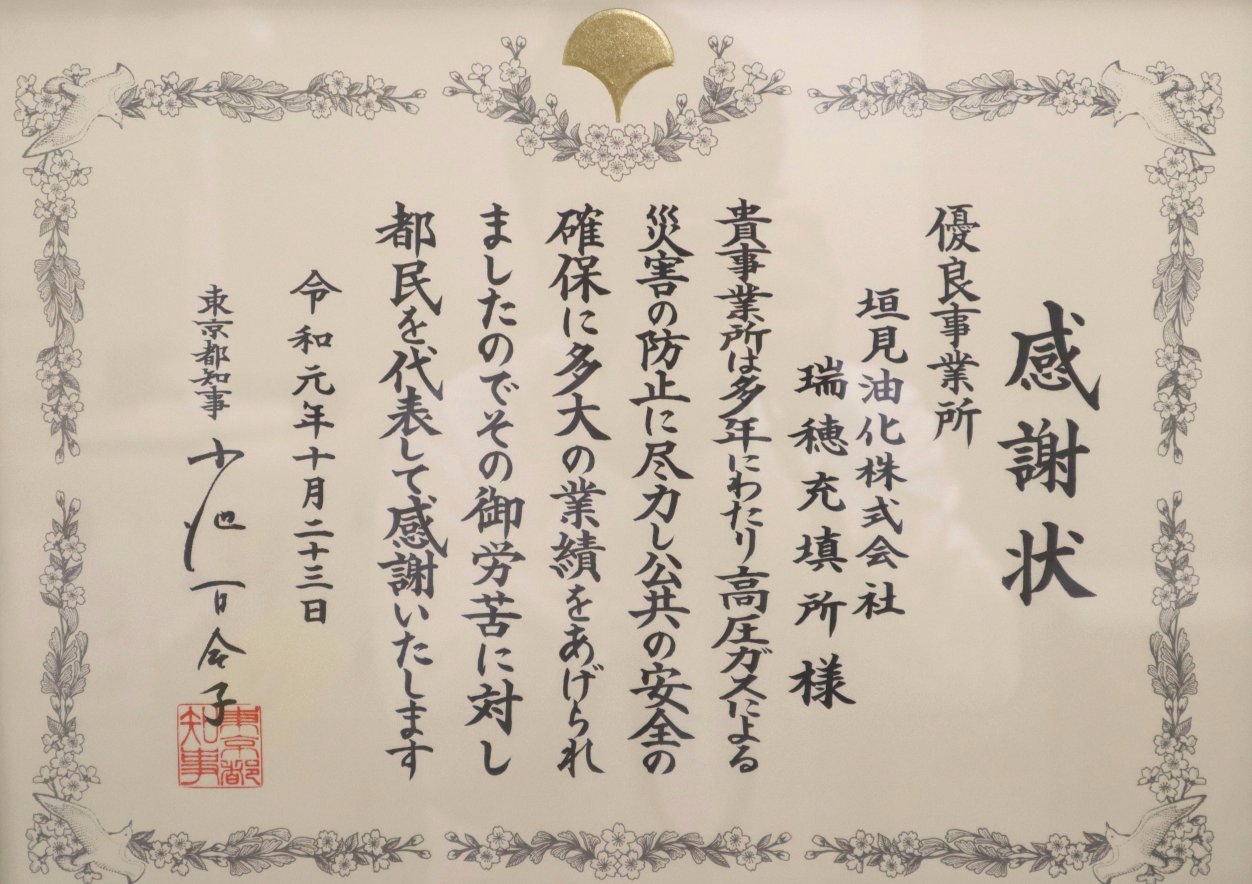 感謝状
優良事業所
垣見油化株式会社
瑞穂充填所様
貴事業所は多年にわたり高圧ガスによる
災害の防止に尽力し公共の安全の
確保に多大の業績をあげられ
ましたのでその御労苦に対し
都民を代表して感謝いたします
令和元年十月二十三日
東京都知事 小池百合子
東京都
知事